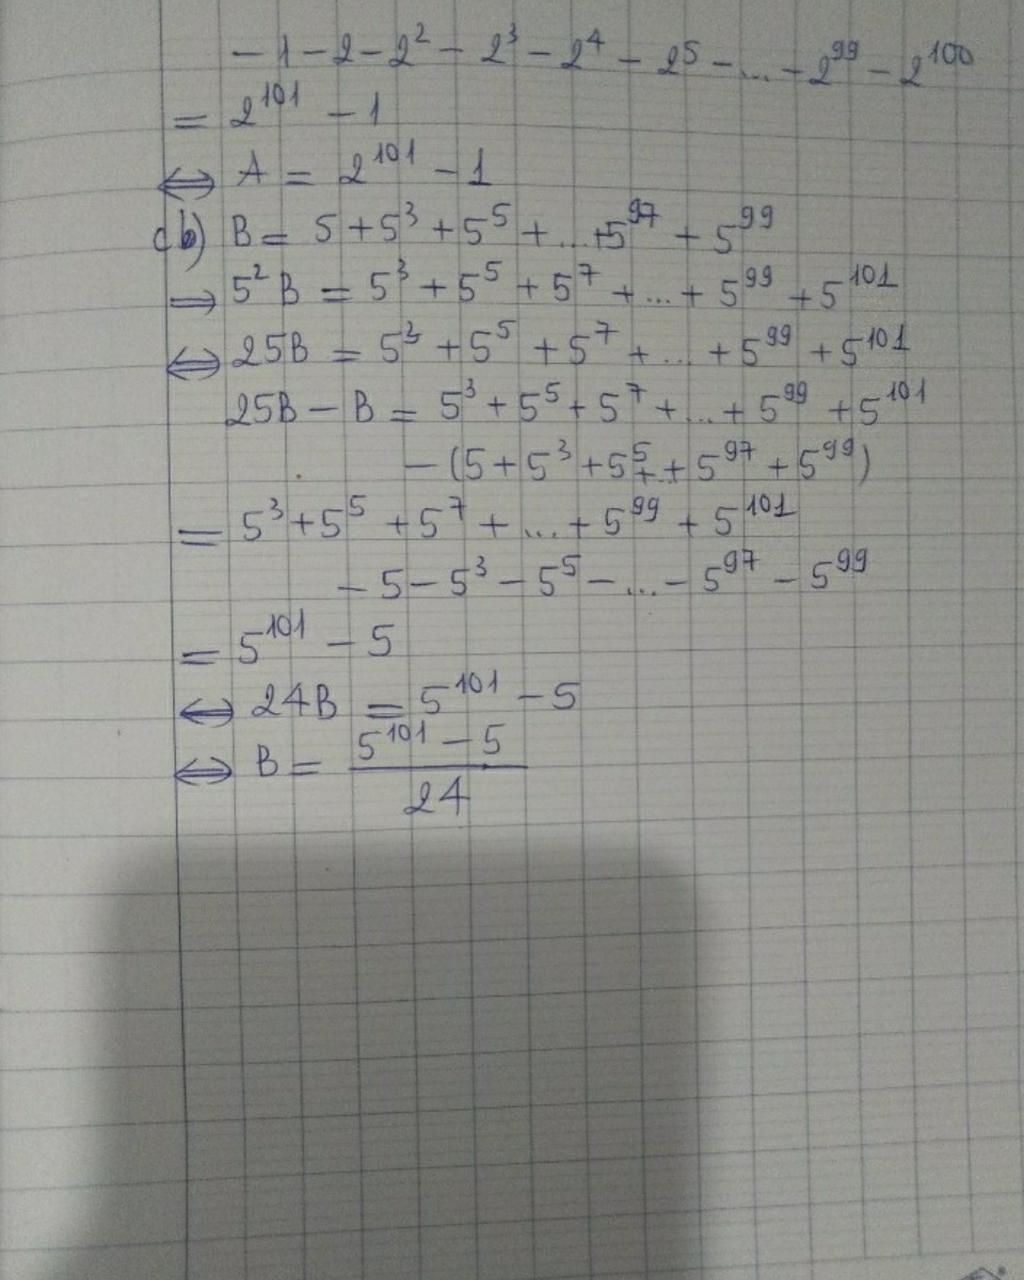 - 1 - 2 - 2² - 2³ - 2⁴ - 2⁵ - ... - 2⁹⁹ - 2¹⁰⁰
= 2¹⁰¹ - 1
⇔ A = 2¹⁰¹ - 1
b) B = 5 + 5³ + 5⁵ + ... + 5⁹⁷ + 5⁹⁹
⇒ 5²B = 5³ + 5⁵ + 5⁷ + ... + 5⁹⁹ + 5¹⁰¹
⇔ 25B = 5³ + 5⁵ + 5⁷ + ... + 5⁹⁹ + 5¹⁰¹
25B - B = 5³ + 5⁵ + 5⁷ + ... + 5⁹⁹ + 5¹⁰¹
- (5 + 5³ + 5⁵ + ... + 5⁹⁷ + 5⁹⁹)
= 5³ + 5⁵ + 5⁷ + ... + 5⁹⁹ + 5¹⁰¹
- 5 - 5³ - 5⁵ - ... - 5⁹⁷ - 5⁹⁹
= 5¹⁰¹ - 5
⇔ 24B = 5¹⁰¹ - 5
⇔ B = 5¹⁰¹ - 5
24